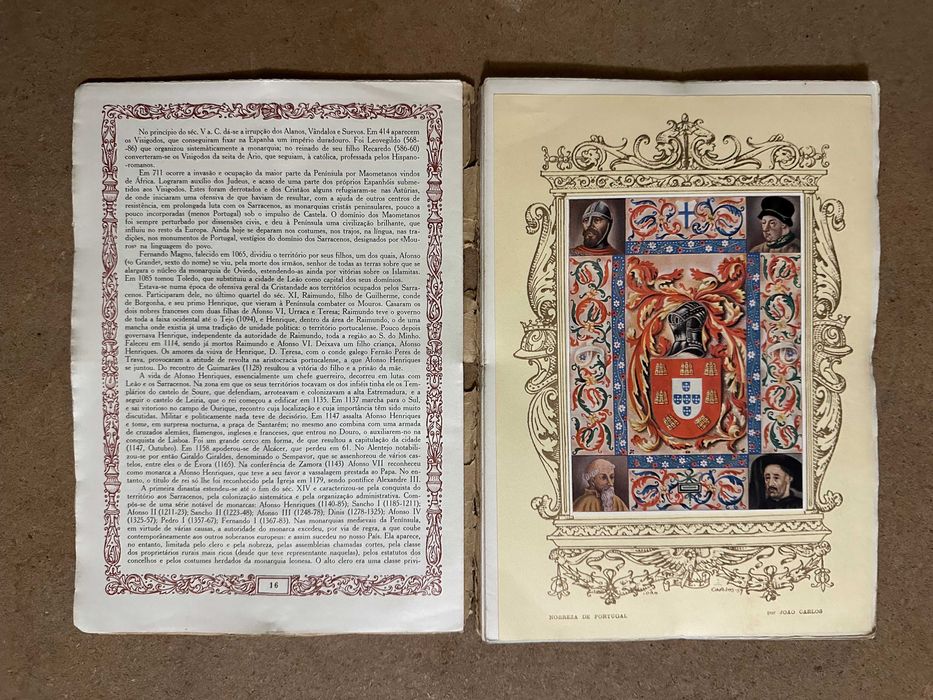 No princípio do séc. V a. C. dá-se a irrupção dos Alanos, Vândalos e Suevos. Em 414 aparecem
os Visigodos, que conseguiram fixar na Espanha um império duradouro. Foi Leovegildo (568-
-86) que organizou sistemàticamente a monarquia; no reinado de seu filho Recaredo (586-60)
converteram-se os Visigodos da seita de Ário, que seguiam, à católica, professada pelos Hispano-
-romanos.
Em 711 ocorre a invasão e ocupação da maior parte da Península por Maometanos vindos
de África. Lograram auxílio dos Judeus, e acaso de uma parte dos próprios Espanhóis subme-
tidos aos Visigodos. Estes foram derrotados e dos Cristãos alguns refugiaram-se nas Astúrias,
de onde iniciaram uma ofensiva de que haviam de resultar, com a ajuda de outros centros de
resistência, em prolongada luta com os Sarracenos, as monarquias cristãs peninsulares, pouco a
pouco incorporadas (menos Portugal) sob o impulso de Castela. O domínio dos Maometanos
foi sempre perturbado por dissensões civis, e deu à Península uma civilização brilhante, que
influiu no resto da Europa. Ainda hoje se deparam nos costumes, nos trajos, na língua, nas tra-
dições, nos monumentos de Portugal, vestígios do domínio dos Sarracenos, designados por «Mou-
ros» na linguagem do povo.
Fernando Magno, falecido em 1065, dividiu o território por seus filhos, um dos quais, Afonso
(«o Grande», sexto do nome) se viu, pela morte dos irmãos, senhor de todas as terras sobre que se
alargara o núcleo da monarquia de Oviedo, estendendo-as ainda por vitórias sobre os Islamitas.
Em 1085 tomou Toledo, que substituiu a cidade de Leão como capital dos seus domínios.
Estava-se numa época de ofensiva geral da Cristandade aos territórios ocupados pelos Sarra-
cenos. Participaram dele, no último quartel do séc. XI, Raimundo, filho de Guilherme, conde
de Borgonha, e seu primo Henrique, que vieram à Península combater os Mouros. Casaram os
dois nobres franceses com duas filhas de Afonso VI, Urraca e Teresa; Raimundo teve o governo
de toda a faixa ocidental até o Tejo (1094), e Henrique, dentro da área de Raimundo, o de uma
mancha onde existia já uma tradição de unidade política: o território portucalense. Pouco depois
governava Henrique, independente da autoridade de Raimundo, toda a região ao S. do Minho.
Faleceu em 1114, sendo já mortos Raimundo e Afonso VI. Deixava um filho criança, Afonso
Henriques. Os amores da viúva de Henrique, D. Teresa, com o conde galego Fernão Peres de
Trava, provocaram a atitude de revolta na aristocracia portucalense, a que Afonso Henriques
se juntou. Do recontro de Guimarães (1128) resultou a vitória do filho e a prisão da mãe.
A vida de Afonso Henriques, essencialmente um chefe guerreiro, decorreu em lutas com
Leão e os Sarracenos. Na zona em que os seus territórios tocavam os dos infiéis tinha ele os Tem-
plários do castelo de Soure, que defendiam, arroteavam e colonizavam a alta Estremadura, e a
seguir o castelo de Leiria, que o rei começou a edificar em 1135. Em 1137 marcha para o Sul,
e sai vitorioso no campo de Ourique, recontro cuja localização e cuja importância têm sido muito
discutidas. Militar e politicamente nada teve de decisório. Em 1147 assalta Afonso Henriques
e tome, em surpresa nocturna, a praça de Santarém; no mesmo ano combina com uma armada
de cruzados alemães, flamengos, ingleses e franceses, que entrou no Douro, o auxiliarem-no na
conquista de Lisboa. Foi um grande cerco em forma, de que resultou a capitulação da cidade
(1147, Outubro). Em 1158 apoderou-se de Alcácer, que perdeu em 61. No Alentejo notabili-
zou-se por então Giraldo Giraldes, denominado o Sempavor, que se assenhorou de vários cas-
telos, entre eles o de Évora (1165). Na conferência de Zamora (1143) Afonso VII reconheceu
como monarca a Afonso Henriques, que teve a seu favor a vassalagem prestada ao Papa. No en-
tanto, o título de rei só lhe foi reconhecido pela Igreja em 1179, sendo pontífice Alexandre III.
A primeira dinastia estendeu-se até o fim do séc. XIV e caracterizou-se pela conquista do
território aos Sarracenos, pela colonização sistemática e pela organização administrativa. Com-
pôs-se de uma série notável de monarcas: Afonso Henriques (1140-85); Sancho I (1185-1211);
Afonso II (1211-23); Sancho II (1223-48); Afonso III (1248-78); Dinis (1278-1325); Afonso IV
(1325-57); Pedro I (1357-67); Fernando I (1367-83). Nas monarquias medievais da Península,
em virtude de várias causas, a autoridade do monarca excedeu, por via de regra, a que coube
contemporâneamente aos outros soberanos europeus: e assim sucedeu no nosso País. Ela aparece,
no entanto, limitada pelo clero e pela nobreza, pelas assembleias chamadas cortes, pela classe
dos proprietários rurais mais ricos (desde que teve representante naquelas), pelos estatutos dos
concelhos e pelos costumes herdados da monarquia leonesa. O alto clero era uma classe privi-
16
NOBREZA DE PORTUGAL
por JOÃO CARLOS